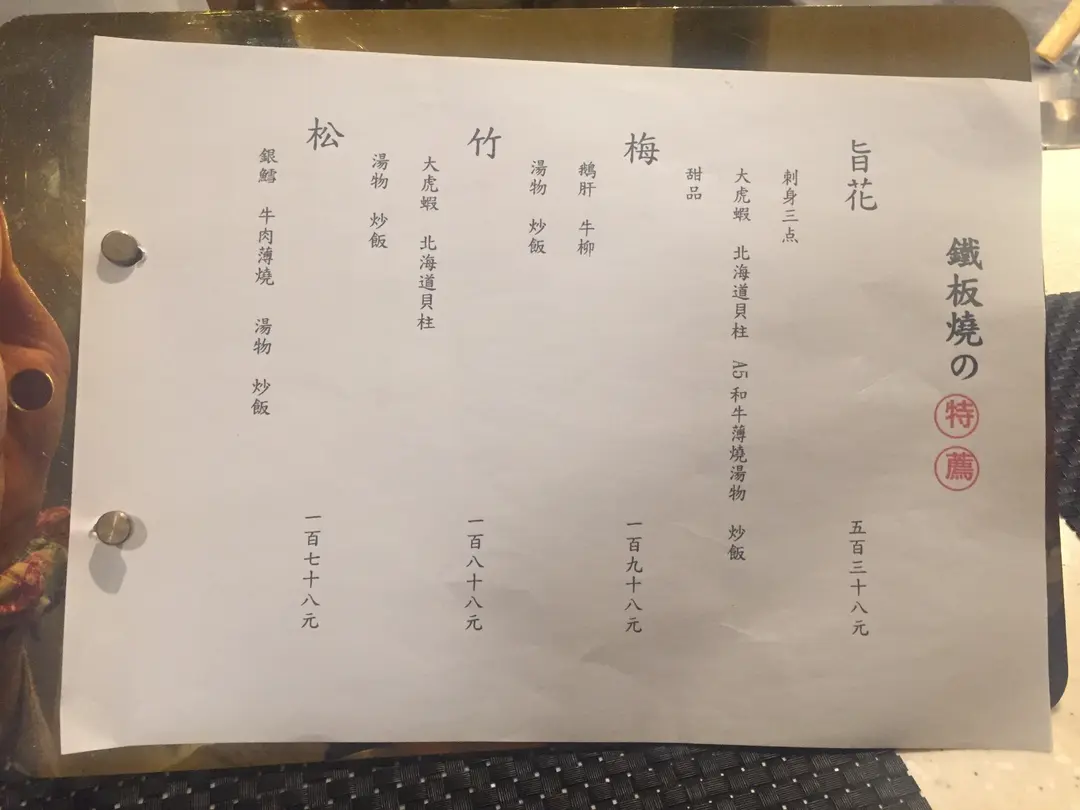 鐵板燒の特薦
旨花 五百三十八元
刺身三点
大虎蝦 北海道貝柱 A5和牛薄燒湯物 炒飯
甜品
梅 一百九十八元
鵝肝 牛柳
湯物 炒飯
竹 一百八十八元
大虎蝦 北海道貝柱
湯物 炒飯
松 一百七十八元
銀鱈 牛肉薄燒 湯物 炒飯